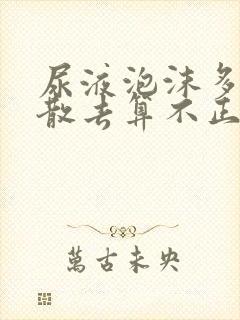 尿液泡沫多
散去算不正
萬古未央